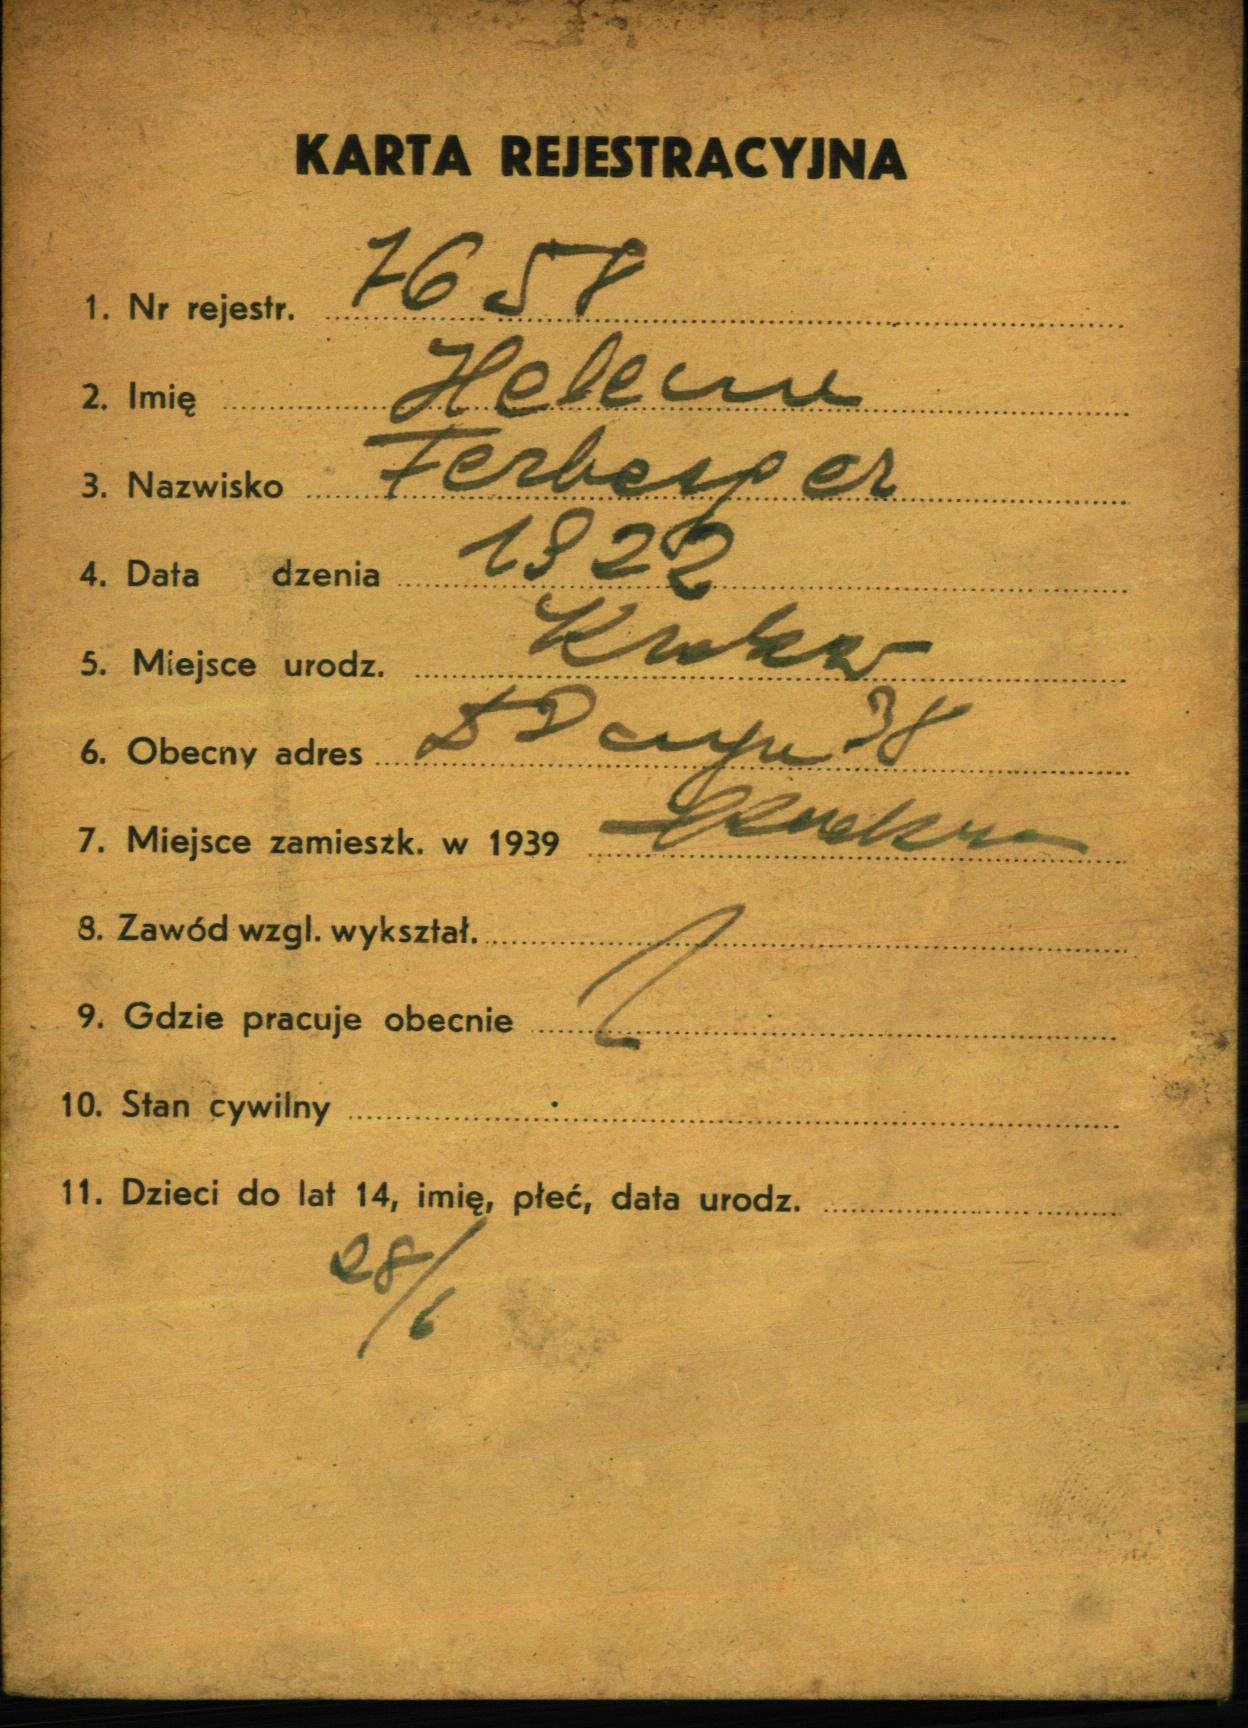 KARTA REJESTRACYJNA
1. Nr rejestr. 7658
2. Imię Helena
3. Nazwisko
4. Data dzenia 1922
5. Miejsce urodz. Krakow
6. Obecny adres 38
7. Miejsce zamieszk. w 1939
8. Zawód wzgl. wykształ.
9. Gdzie pracuje obecnie
10. Stan cywilny
11. Dzieci do lat 14, imię, płeć, data urodz.
28/6